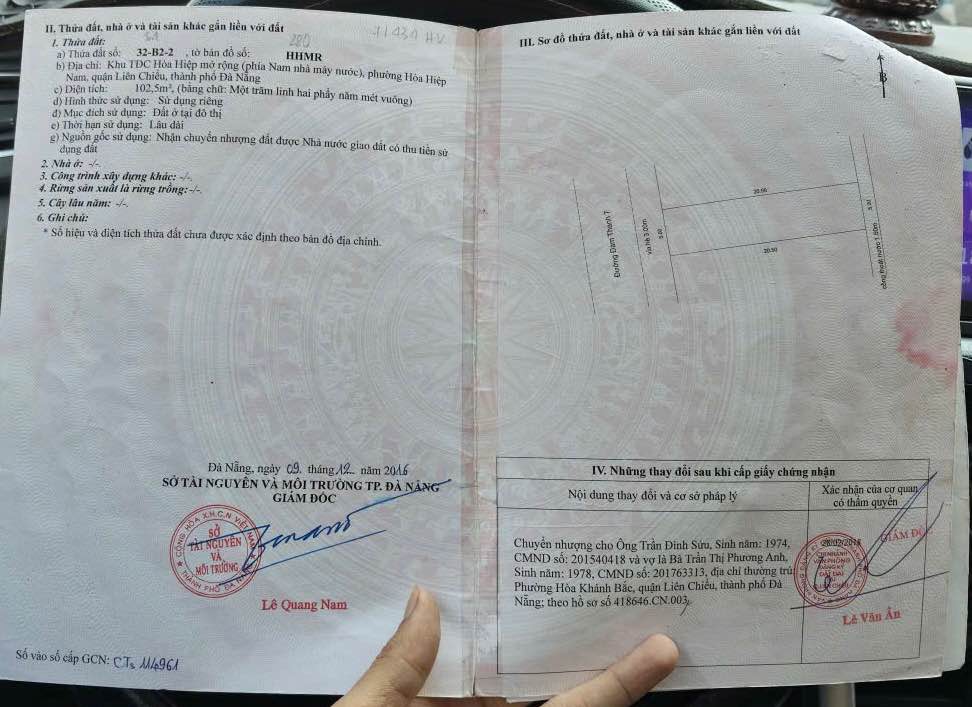 II. Thửa đất, nhà ở và tài sản khác gắn liền với đất
1. Thửa đất:
a) Thửa đất số: 32-B2-2 , tờ bản đồ số: HHMR
b) Địa chỉ: Khu TĐC Hòa Hiệp mở rộng (phía Nam nhà máy nước), phường Hòa Hiệp
Nam, quận Liên Chiểu, thành phố Đà Nẵng
c) Diện tích: 102,5m², (bằng chữ: Một trăm linh hai phẩy năm mét vuông)
d) Hình thức sử dụng: Sử dụng riêng
đ) Mục đích sử dụng: Đất ở tại đô thị
e) Thời hạn sử dụng: Lâu dài
g) Nguồn gốc sử dụng: Nhận chuyển nhượng đất được Nhà nước giao đất có thu tiền sử
dụng đất
2. Nhà ở: -/-.
3. Công trình xây dựng khác: -/-.
4. Rừng sản xuất là rừng trồng: -/-.
5. Cây lâu năm: -/-.
6. Ghi chú:
* Số hiệu và diện tích thửa đất chưa được xác định theo bản đồ địa chính.
Đà Nẵng, ngày 09 tháng 12 năm 2016
SỞ TÀI NGUYÊN VÀ MÔI TRƯỜNG TP. ĐÀ NẴNG
GIÁM ĐỐC
CỘNG HÒA X.H.C.N VIỆT NAM
SỞ
TÀI NGUYÊN
VÀ
MÔI TRƯỜNG
THÀNH PHỐ ĐÀ NẴNG
Lê Quang Nam
Số vào sổ cấp GCN: CTs 114961
III. Sơ đồ thửa đất, nhà ở và tài sản khác gắn liền với đất
B
Đường Đàm Thanh 7
Vỉa hè 3.00m
5.00
20.50
20.50
5.00
cống thoát nước 1.60m
IV. Những thay đổi sau khi cấp giấy chứng nhận
Nội dung thay đổi và cơ sở pháp lý
Xác nhận của cơ quan
có thẩm quyền
Chuyển nhượng cho Ông Trần Đình Sửu, Sinh năm: 1974,
CMND số: 201540418 và vợ là Bà Trần Thị Phương Anh,
Sinh năm: 1978, CMND số: 201763313, địa chỉ thường trú:
Phường Hòa Khánh Bắc, quận Liên Chiểu, thành phố Đà
Nẵng; theo hồ sơ số 418646.CN.003
28/02/2018
GIÁM ĐỐC
Lê Văn Ẩn